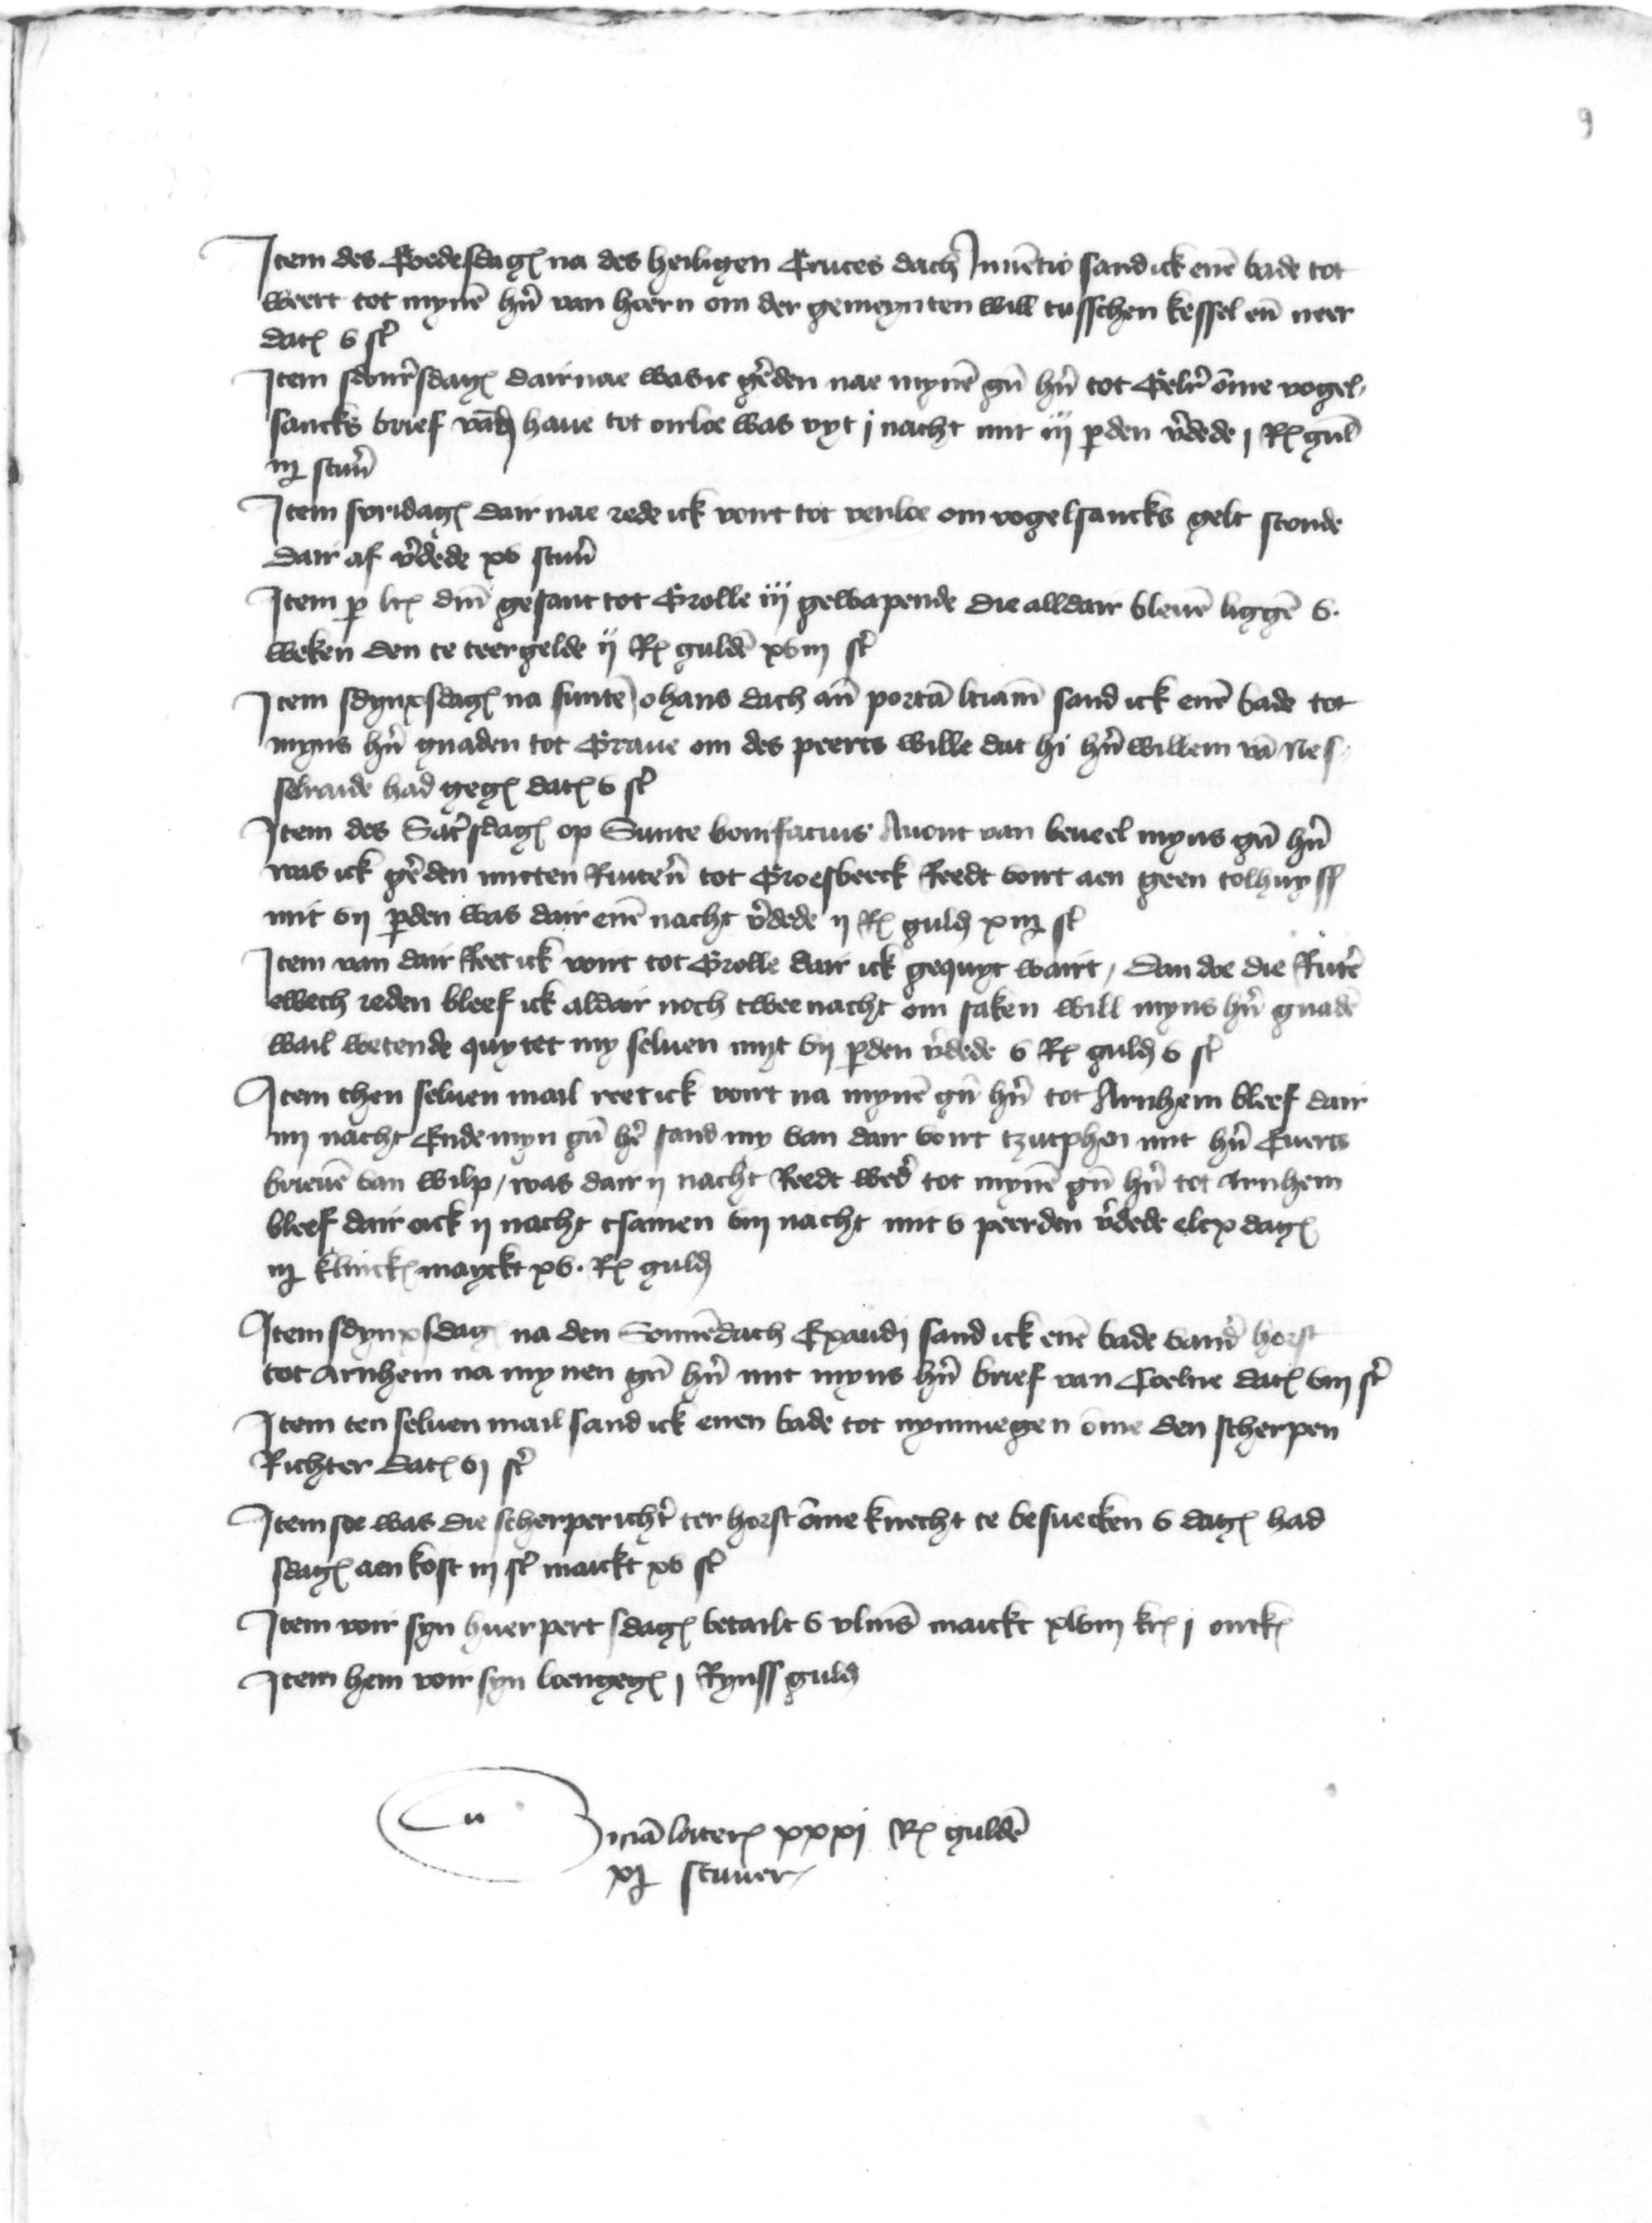 9
Item des Goedesdagꝭ na des heiligen Cruces dach Inuētio sand ick enē bade tot
Weert tot mynē hn̄ van hoern om der gemeynten will tusschen kessel en̄ neer
datꝭ v st
Item sdonrsdagꝭ dairnae was ic gerēden nae mynē gn̄ hn̄ tot Gelr̄ om̄e vogel-
sancks brief vand' haue tot oirloe was vyt j nacht mit iij pden v'dede j Rꝭ gul
iij stuu'
Item svridagꝭ dair nae rede ick vort tot venloe om vogelsancks gelt stonde
dair af v'dede xv stuu'
Item p lrꝭ dn̄i gesant tot Grolle iij gewapende die alldair bleuē liggē v.
weken den te teergelde ij Rꝭ guldē xviij st
Item sdynxsdagꝭ na sunte Johans dach an̄ portā latinā sand ick enē bade tot
myns hn̄ gnaden tot Graue om des peerts wille dat hi hn̄ willem vā Nes-
selraide had gegꝭ datꝭ v st
Item des Sat'sdagꝭ op Sunte bonifacius Auont van beueel myns gn̄ hn̄
was ick gerēden mitten Ruter̄n tot Groesbeeck Reedt vort aen geen tolhuyss
mit vij pden was dair enē nacht v'dede ij Rꝭ guld' xiij st
Item van dair Reet ick vort tot Grolle dair ick gequyt wairt, dan doe die Rutē
ewech reden bleef ick aldair noch twee nacht om saken will myns hn̄ gnadē
wail wetende quytet my seluen myt vij pden v'dede v Rꝭ guld' v st
Item then seluen mail reet ick vort na mynē gn̄ hn̄ tot Arnhem bleef dair
iiij nacht Ende myn gn̄ he' sand my van dair vort tzutphen mit hn̄ Euerts
brieuē van wilp, was dair ij nacht Reedt wed' tot mynē gn̄ hn̄ tot Arnhem
bleef dair oick ij nacht tsamen viij nacht mit v peerden v'dede elcx dagꝭ
iij klinckꝭ mayckt xv. Rꝭ guld'
Item sdynxsdagꝭ na den Sonnēdach Exaudi sand ick enē bade vand' horst
tot Arnhem na mynen gn̄ hn̄ mit myns hn̄ brief van Coelne datꝭ viij st
Item ten seluen mail sand ick enen bade tot nymmegen om̄e den scherpen
Richter datꝭ vj st
Item soe was die scherpericht' ter horst om̄e knecht te besuecken v dagꝭ had
sdagꝭ aen kost iij st maickt xv st
Item voir syn huerpert sdagꝭ betailt v vlms̄ maickt xlviij krꝭ j ortkꝭ
Item hem voir syn loen gegꝭ j Rynss guld'
xxxj Rꝭ guldē
xj stuuer